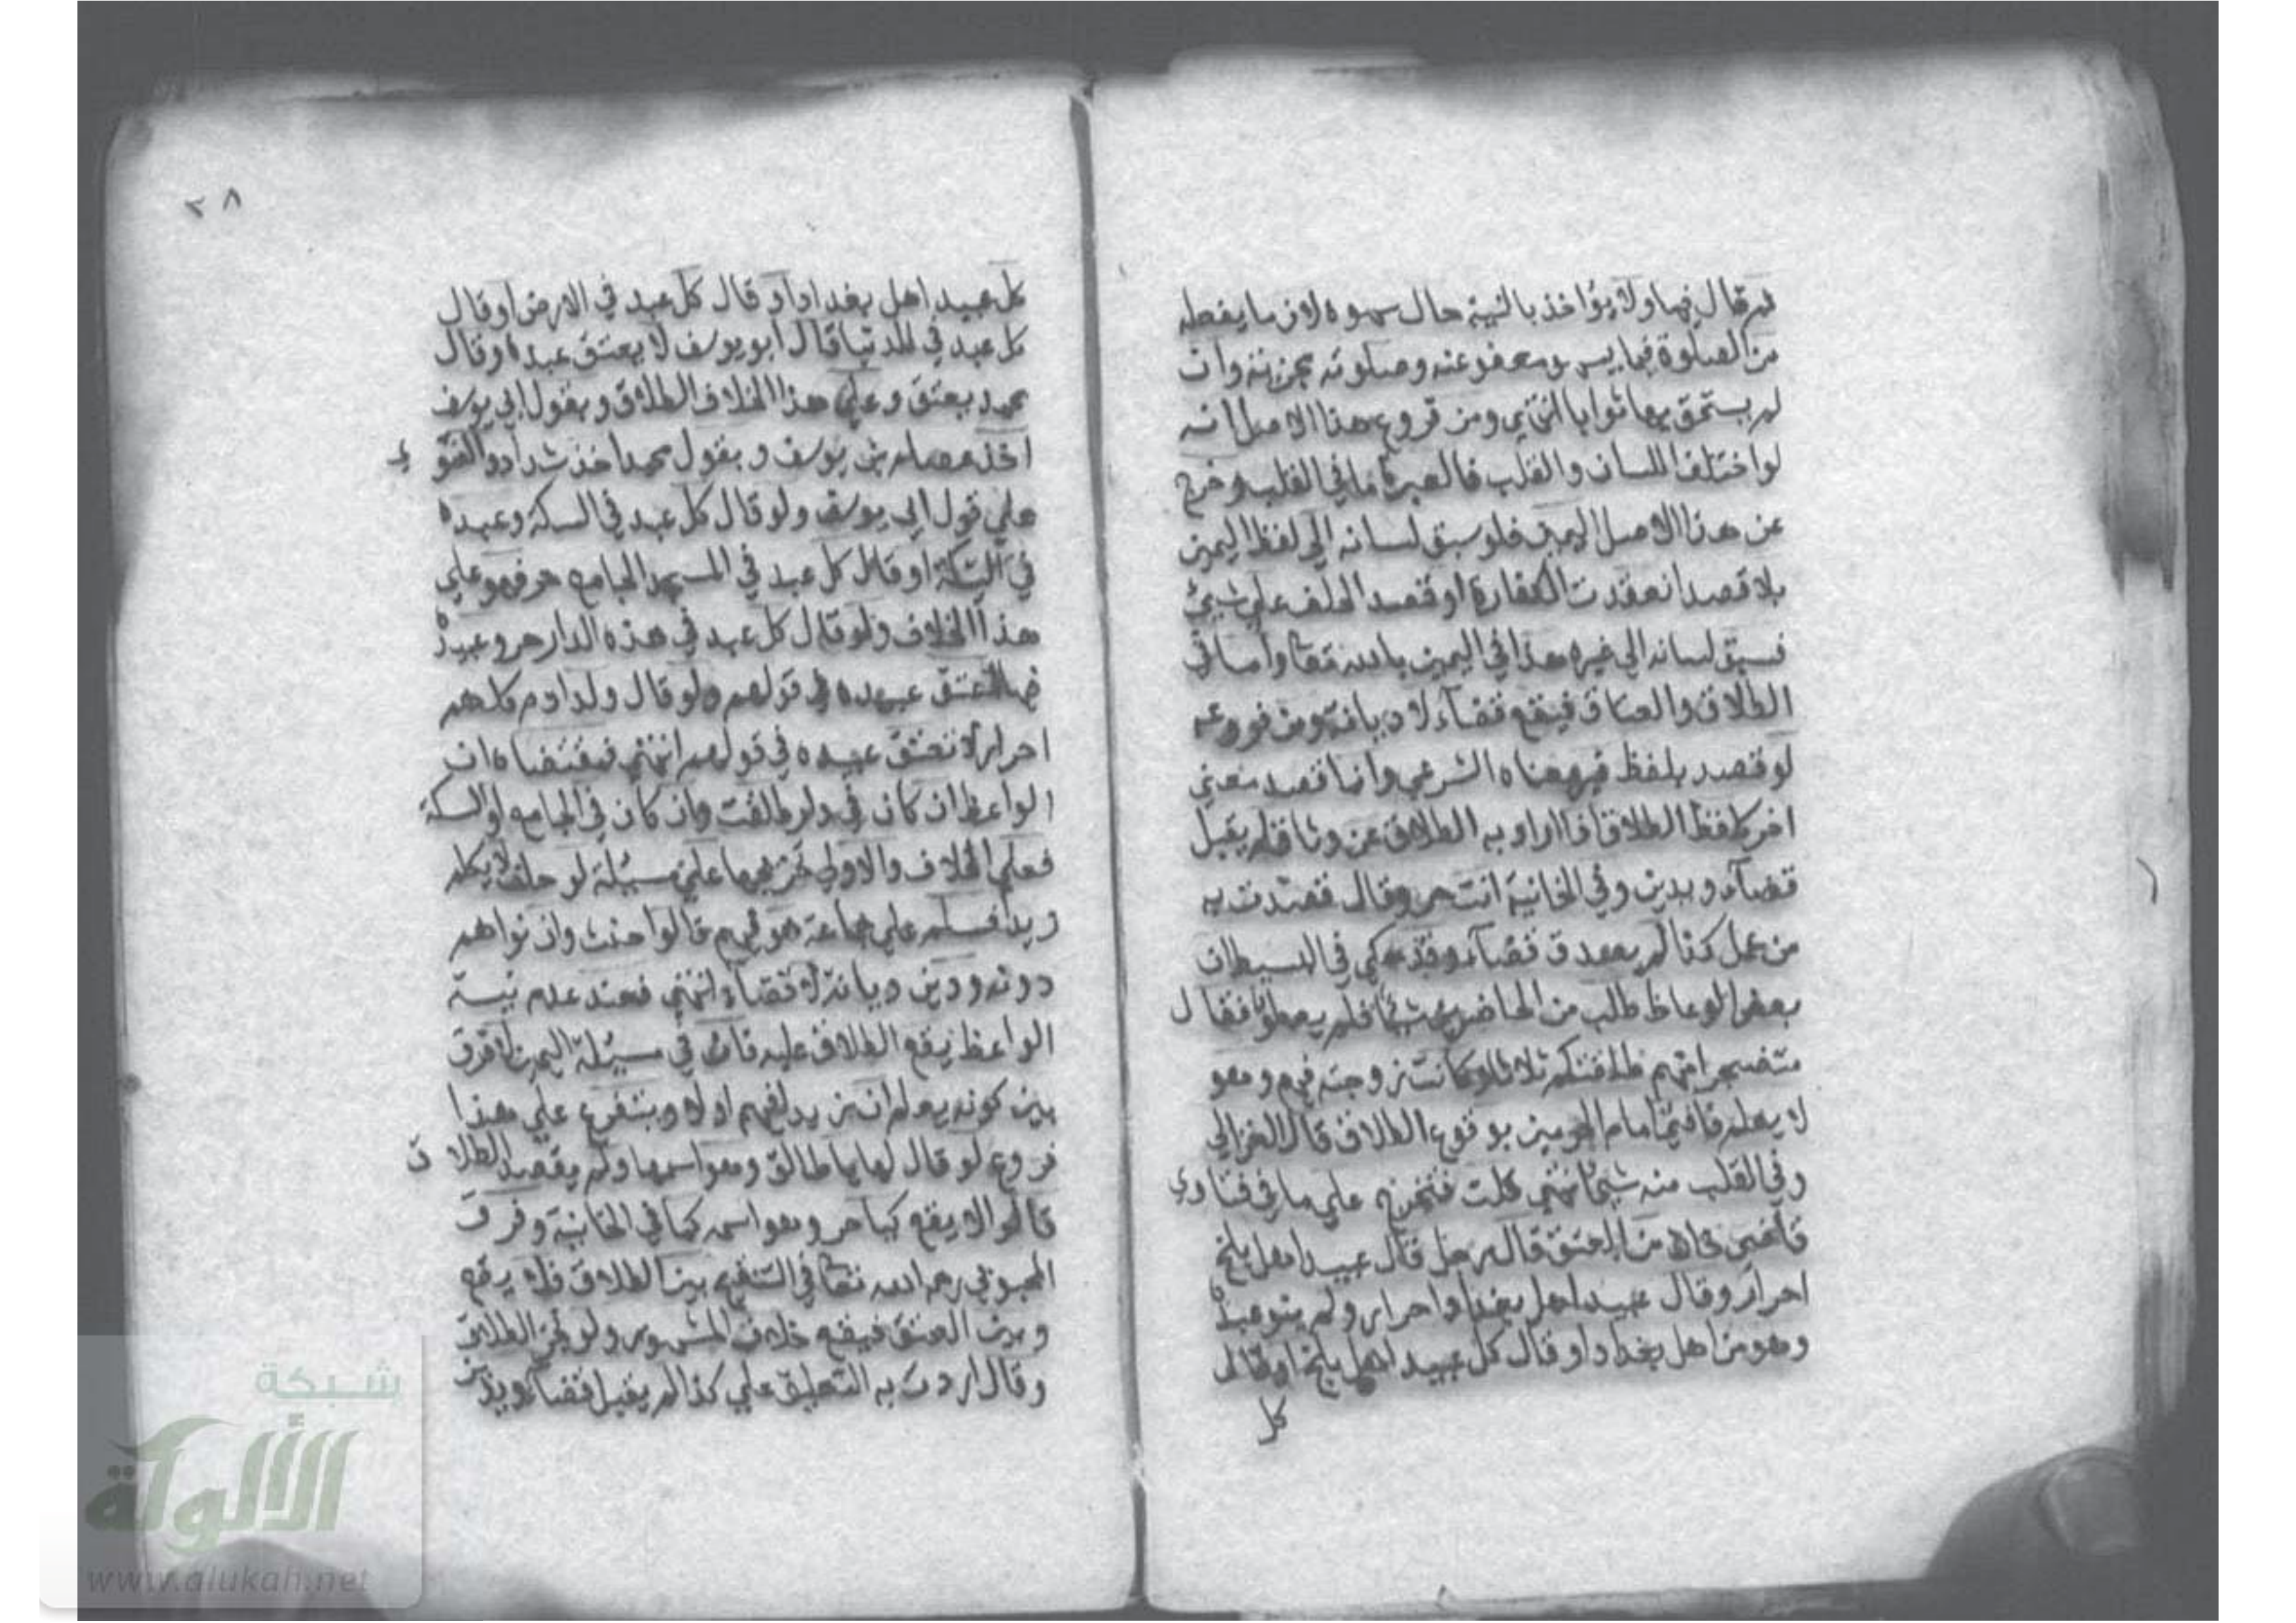 ثم قال فيها ولا يؤاخذ بالنية حال سهوه لان ما يفعله
من الصلوة فيما يسهو معفو عنه وصلوته مجزئة وان
لم يستحق بها ثوابا انتهي ومن فروع هذا الاصل انه
لو اختلف اللسان والقلب فالعبرة بما في القلب وخرج
عن هذا الاصل اليمين فلو سبق لسانه الي لفظ اليمين
بلا قصد انعقدت الكفارة او قصد الحلف علي شيئ
فسبق لسانه الي غيره هذا في اليمين بالله تعا واما في
الطلاق والعتاق فيقع قضاء لا ديانة ومن فروعه
لو قصد بلفظ غير معناه الشرعي وانما قصد معني
اخر كلفظ الطلاق اذا اراد به الطلاق عن وثاق لم يقبل
قضاء ويدين وفي الخانية انت حر وقال قصدت به
من عمل كذا لم يصدق قضاء وقد حكي في البسيط ان
بعض الوعاظ طلب من الحاضرين شيئا فلم يعطوا فقال
متضجرا منهم طلقتكم ثلاثا وكانت زوجته فيهم وهو
لا يعلم فافتي امام الحرمين بوقوع الطلاق قال الغزالي
وفي القلب منه شيئ انتهي قلت فتخرج علي ما في فتاوي
قاضي خان من العتق قال رجل قال عبيد اهل بلخ
احرار وقال عبيد اهل بغداد احرار ولم ينو عبده
وهو من اهل بغداد او قال كل عبيد اهل بلخ او قال
كل
٣٨
كل عبيد اهل بغداد او قال كل عبد في الارض او قال
كل عبد في الدنيا قال ابو يوسف لا يعتق عبده وقال
محمد يعتق وعلي هذا الخلاف الطلاق وبقول ابي يوسف
اخذ عصام بن يوسف وبقول محمد اخذ شداد والفتوي
علي قول ابي يوسف ولو قال كل عبد في السكة وعبده
في السكة او قال كل عبد في المسجد الجامع حر فهو علي
هذا الخلاف ولو قال كل عبد في هذه الدار حر وعبيده
فيها عتق عبيده في قولهم ولو قال ولد ادم كلهم
احرار لا تعتق عبيده في قولهم انتهي فمقتضاه ان
الواعظ ان كان في دار طلقت وان كان في الجامع او السكة
فعلي الخلاف والاولي تخريجها علي مسيلة لو حلف لا يكلم
زيدا فسلم علي جماعة هو فيهم قالوا حنث وان نواهم
دونه ودين ديانة لا قضاء انتهي فعند عدم نية
الواعظ يقع الطلاق عليه فان في مسيلة اليمين لا فرق
بين كونه يعلم ان زيد فيهم اولا ويتفرع علي هذا
فروع لو قال لها يا طالق وهو اسمها ولم يقصد الطلاق
قالوا لا يقع كيا حر وهو اسمه كما في الخانية وفرق
المحبوبي رحمه الله تعا في التنقيح بين الطلاق فلا يقع
وبين العتق فيقع خلاف المشهور ولو نجز الطلاق
وقال اردت به التعليق علي كذا لم يقبل قضاء ويدين
شبكة
الألوكة
www.alukah.net